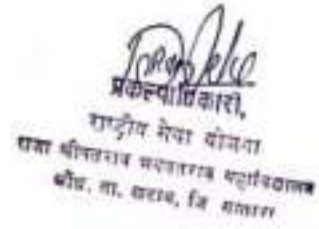 प्रकल्पाधिकारी,
राष्ट्रीय सेवा योजना
राजा श्रीपतराव भगवंतराव महाविद्यालय
औंध, ता. खटाव, जि सातारा